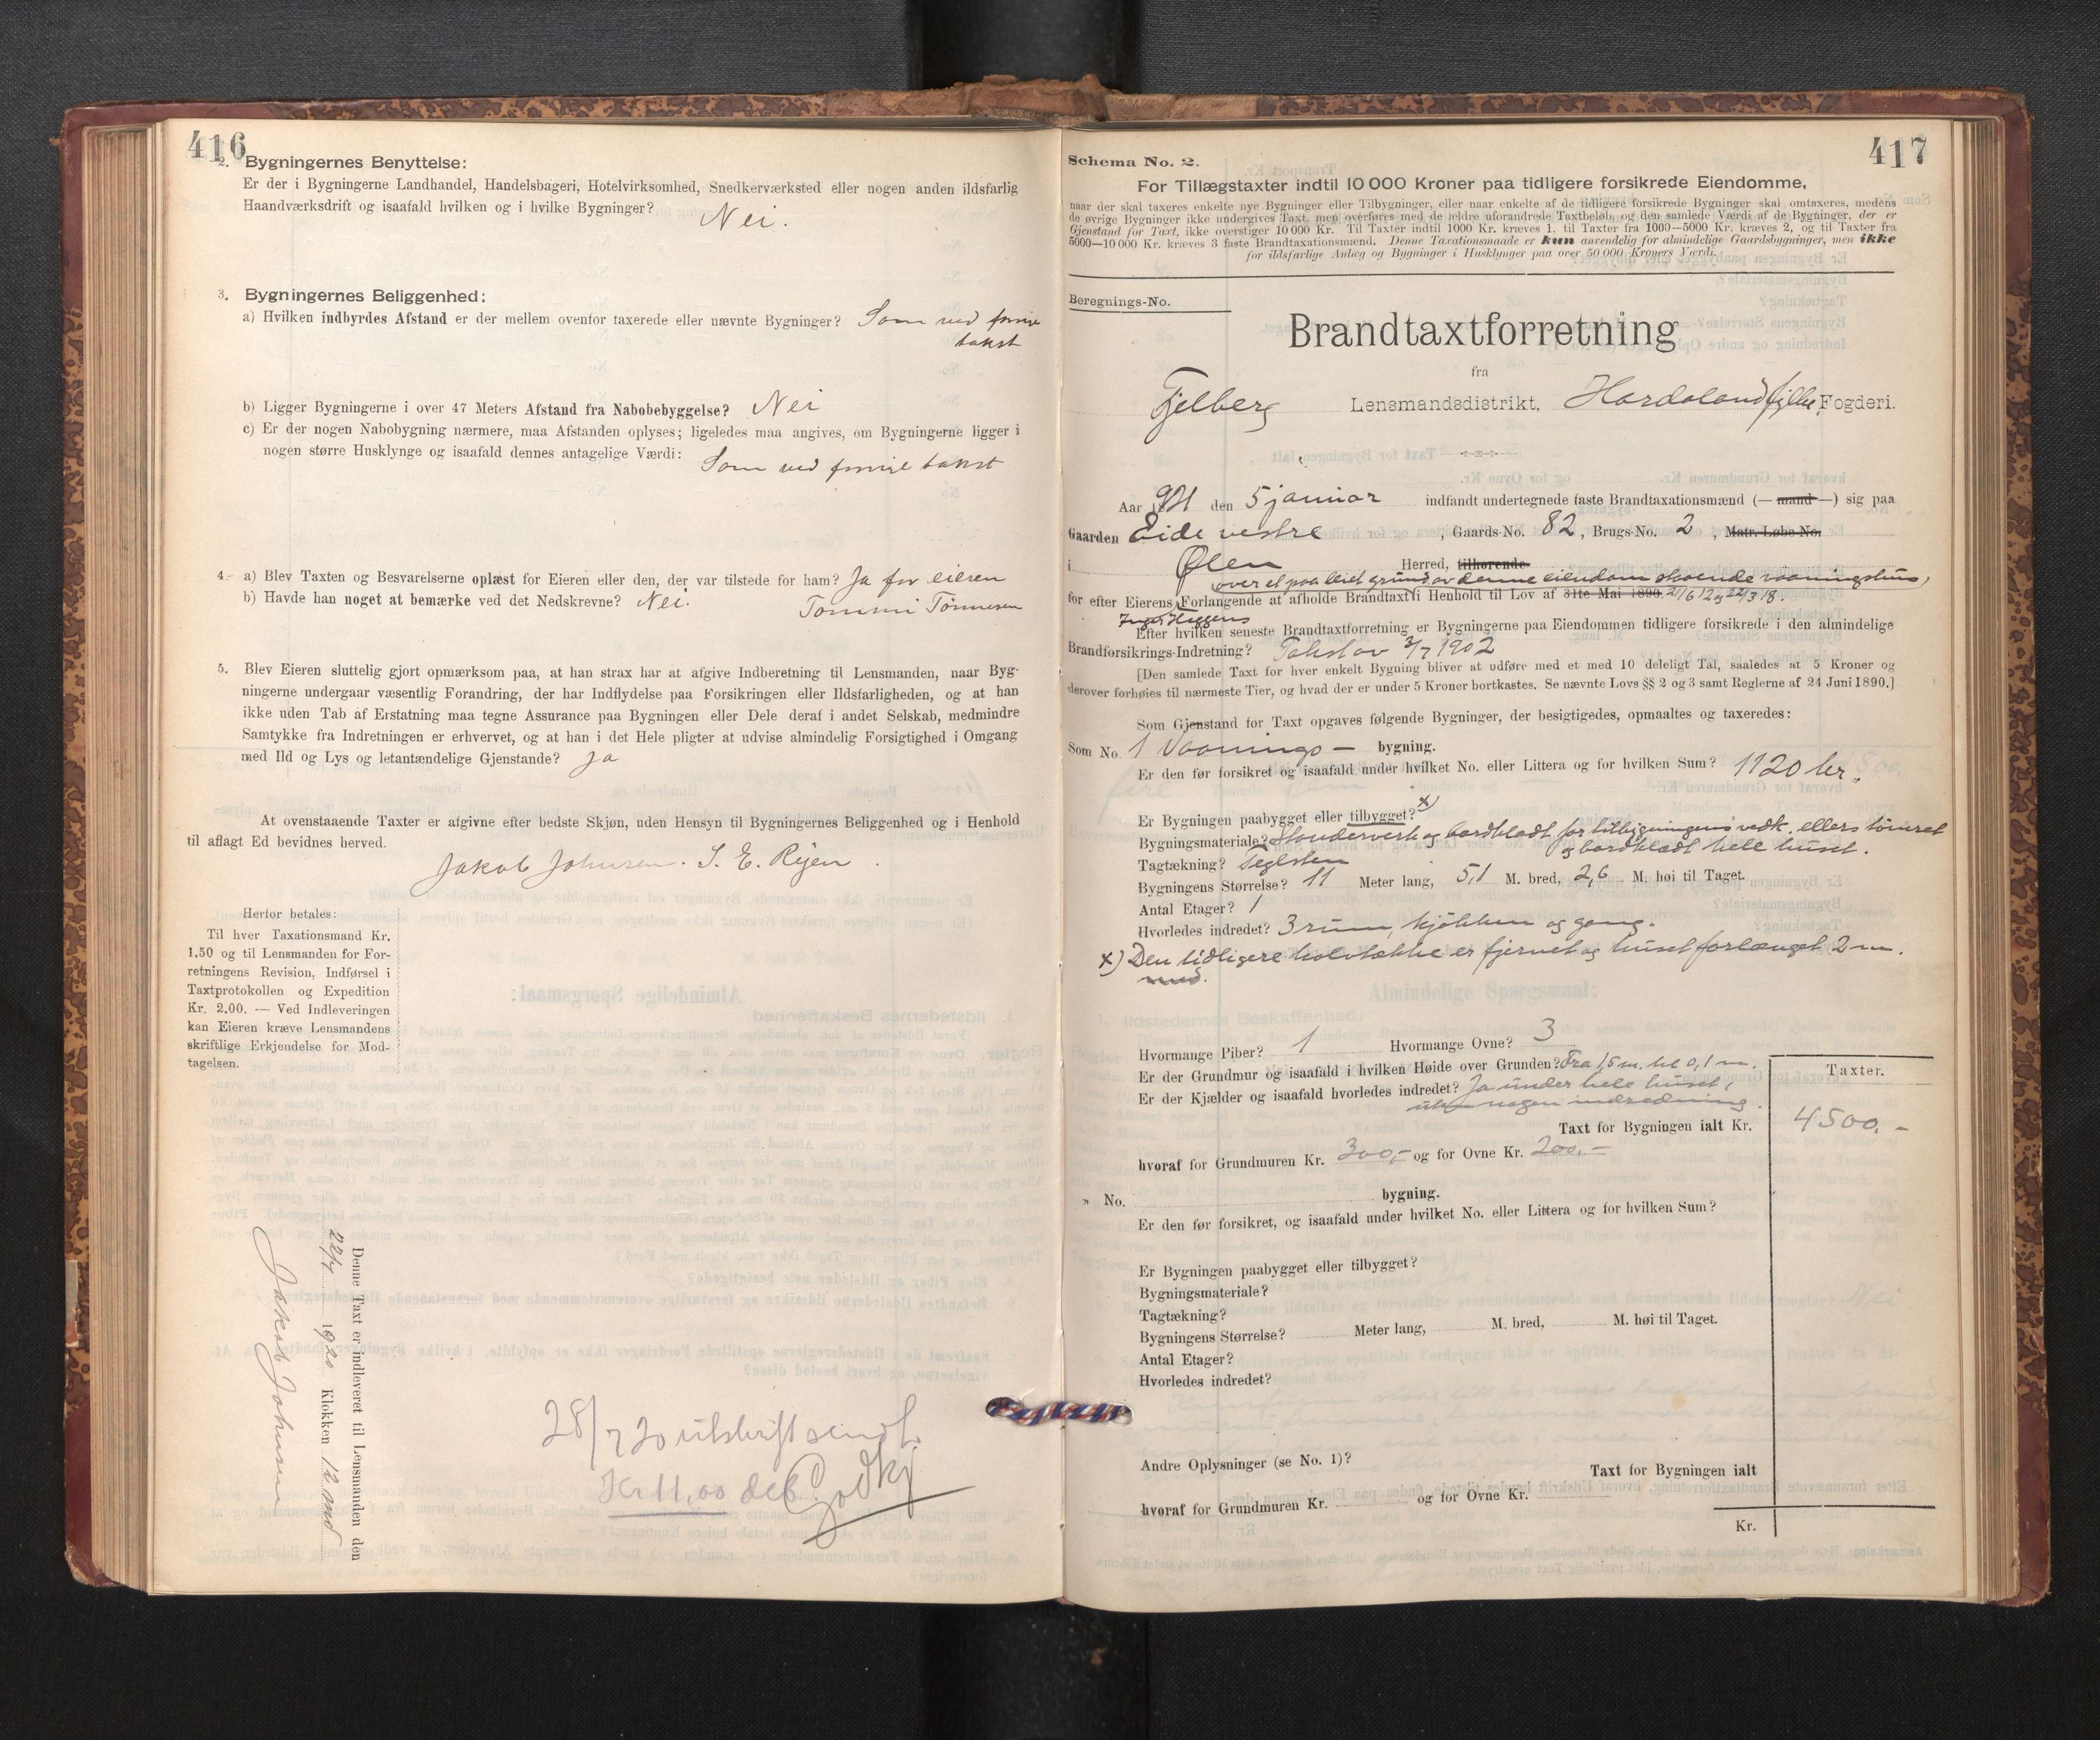 416
2. Bygningernes Benyttelse:
Er der i Bygningerne Landhandel, Handelsbageri, Hotelvirksomhed, Snedkerværksted eller nogen anden ildsfarlig
Haandværksdrift og isaafald hvilken og i hvilke Bygninger? Nei.
3. Bygningernes Beliggenhed:
a) Hvilken indbyrdes Afstand er der mellem ovenfor taxerede eller nævnte Bygninger? Som ved forrige
takst
b) Ligger Bygningerne i over 47 Meters Afstand fra Nabobebyggelse? Nei
c) Er der nogen Nabobygning nærmere, maa Afstanden oplyses; ligeledes maa angives, om Bygningerne ligger i
nogen større Husklynge og isaafald dennes antagelige Værdi: Som ved forrige takst
4. a) Blev Taxten og Besvarelserne oplæst for Eieren eller den, der var tilstede for ham? Ja for eieren
b) Havde han noget at bemærke ved det Nedskrevne? Nei. Tommi Tønnesen
5. Blev Eieren sluttelig gjort opmærksom paa, at han strax har at afgive Indberetning til Lensmanden, naar Byg-
ningerne undergaar væsentlig Forandring, der har Indflydelse paa Forsikringen eller Ildsfarligheden, og at han
ikke uden Tab af Erstatning maa tegne Assurance paa Bygningen eller Dele deraf i andet Selskab, medmindre
Samtykke fra Indretningen er erhvervet, og at han i det Hele pligter at udvise almindelig Forsigtighed i Omgang
med Ild og Lys og letantændelige Gjenstande? Ja
At ovenstaaende Taxter er afgivne efter bedste Skjøn, uden Hensyn til Bygningernes Beliggenhed og i Henhold
til aflagt Ed bevidnes herved.
Jakob Johnsen. S. E. Rijen
Herfor betales:
Til hver Taxationsmand Kr.
1.50 og til Lensmanden for For-
retningens Revision, Indførsel i
Taxtprotokollen og Expedition
Kr. 2.00. — Ved Indleveringen
kan Eieren kræve Lensmandens
skriftlige Erkjendelse for Mod-
tagelsen.
Denne Taxt er indleveret til Lensmanden den
22/7 1920 Klokken 12 md
Jakob Johnsen
28/7 20 utskrift sendt.
Kr 11,00 deb.
Godkj
417
Schema No. 2.
For Tillægstaxter indtil 10 000 Kroner paa tidligere forsikrede Eiendomme,
naar der skal taxeres enkelte nye Bygninger eller Tilbygninger, eller naar enkelte af de tidligere forsikrede Bygninger skal omtaxeres, medens
de øvrige Bygninger ikke undergives Taxt, men overføres med de ældre uforandrede Taxtbeløb, og den samlede Værdi af de Bygninger, der er
Gjenstand for Taxt, ikke overstiger 10 000 Kr. Til Taxter indtil 1000 Kr. kræves 1, til Taxter fra 1000—5000 Kr. kræves 2, og til Taxter fra
5000—10 000 Kr. kræves 3 faste Brandtaxationsmænd. Denne Taxationsmaade er kun anvendelig for almindelige Gaardsbygninger, men ikke
for ildsfarlige Anlæg og Bygninger i Husklynger paa over 50 000 Kroners Værdi.
Beregnings-No.
Brandtaxtforretning
fra
Fjelberg Lensmandsdistrikt, Hordaland fylke, Fogderi.
Aar 1921 den 5 januar indfandt undertegnede faste Brandtaxationsmænd (— mand —) sig paa
Gaarden Eide vestre, Gaards-No. 82, Brugs-No. 2, Matr.-Løbe-No.
i Ølen Herred, tilhørende
over et paa leiet grund av denne eiendom staaende vaaningshus,
for efter Eierens Forlangende at afholde Brandtaxt i Henhold til Lov af 31te Mai 1890. 21/6 12 og 22/3 18.
Inger Heggens
Efter hvilken seneste Brandtaxtforretning er Bygningerne paa Eiendommen tidligere forsikrede i den almindelige
Brandforsikrings-Indretning? Takst av 3/7 1902
[Den samlede Taxt for hver enkelt Bygning bliver at udføre med et med 10 deleligt Tal, saaledes at 5 Kroner og
derover forhøies til nærmeste Tier, og hvad der er under 5 Kroner bortkastes. Se nævnte Lovs §§ 2 og 3 samt Reglerne af 24 Juni 1890.]
Som Gjenstand for Taxt opgaves følgende Bygninger, der besigtigedes, opmaaltes og taxeredes:
Som No. 1 Vaanings— bygning.
Er den før forsikret og isaafald under hvilket No. eller Littera og for hvilken Sum? 1120 kr.
Er Bygningen paabygget eller tilbygget? x)
Bygningsmateriale? Standerverk og bordklædt for tilbygningens vedk. ellers tømret
og bordklædt hele huset.
Tagtækning? Teglsten
Bygningens Størrelse? 11 Meter lang, 5,1 M. bred, 2,6 M. høi til Taget.
Antal Etager? 1
Hvorledes indredet? 3 rum, kjøkken og gang.
x) Den tidligere halvtække er fjernet og huset forlænget 2 m.
Hvormange Piber? 1 Hvormange Ovne? 3
Er der Grundmur og isaafald i hvilken Høide over Grunden? Fra 1,5 m. til 0,1 m.
Er der Kjælder og isaafald hvorledes indredet? Ja under hele huset,
uten nogen indredning.
Taxter.
Taxt for Bygningen ialt Kr. 4500.-
hvoraf for Grundmuren Kr. 300,- og for Ovne Kr. 200.-
„ No. bygning.
Er den før forsikret, og isaafald under hvilket No. eller Littera og for hvilken Sum?
Er Bygningen paabygget eller tilbygget?
Bygningsmateriale?
Tagtækning?
Bygningens Størrelse? Meter lang, M. bred, M. høi til Taget.
Antal Etager?
Hvorledes indredet?
Andre Oplysninger (se No. 1)?
Taxt for Bygningen ialt
hvoraf for Grundmuren Kr. og for Ovne Kr.
Kr.